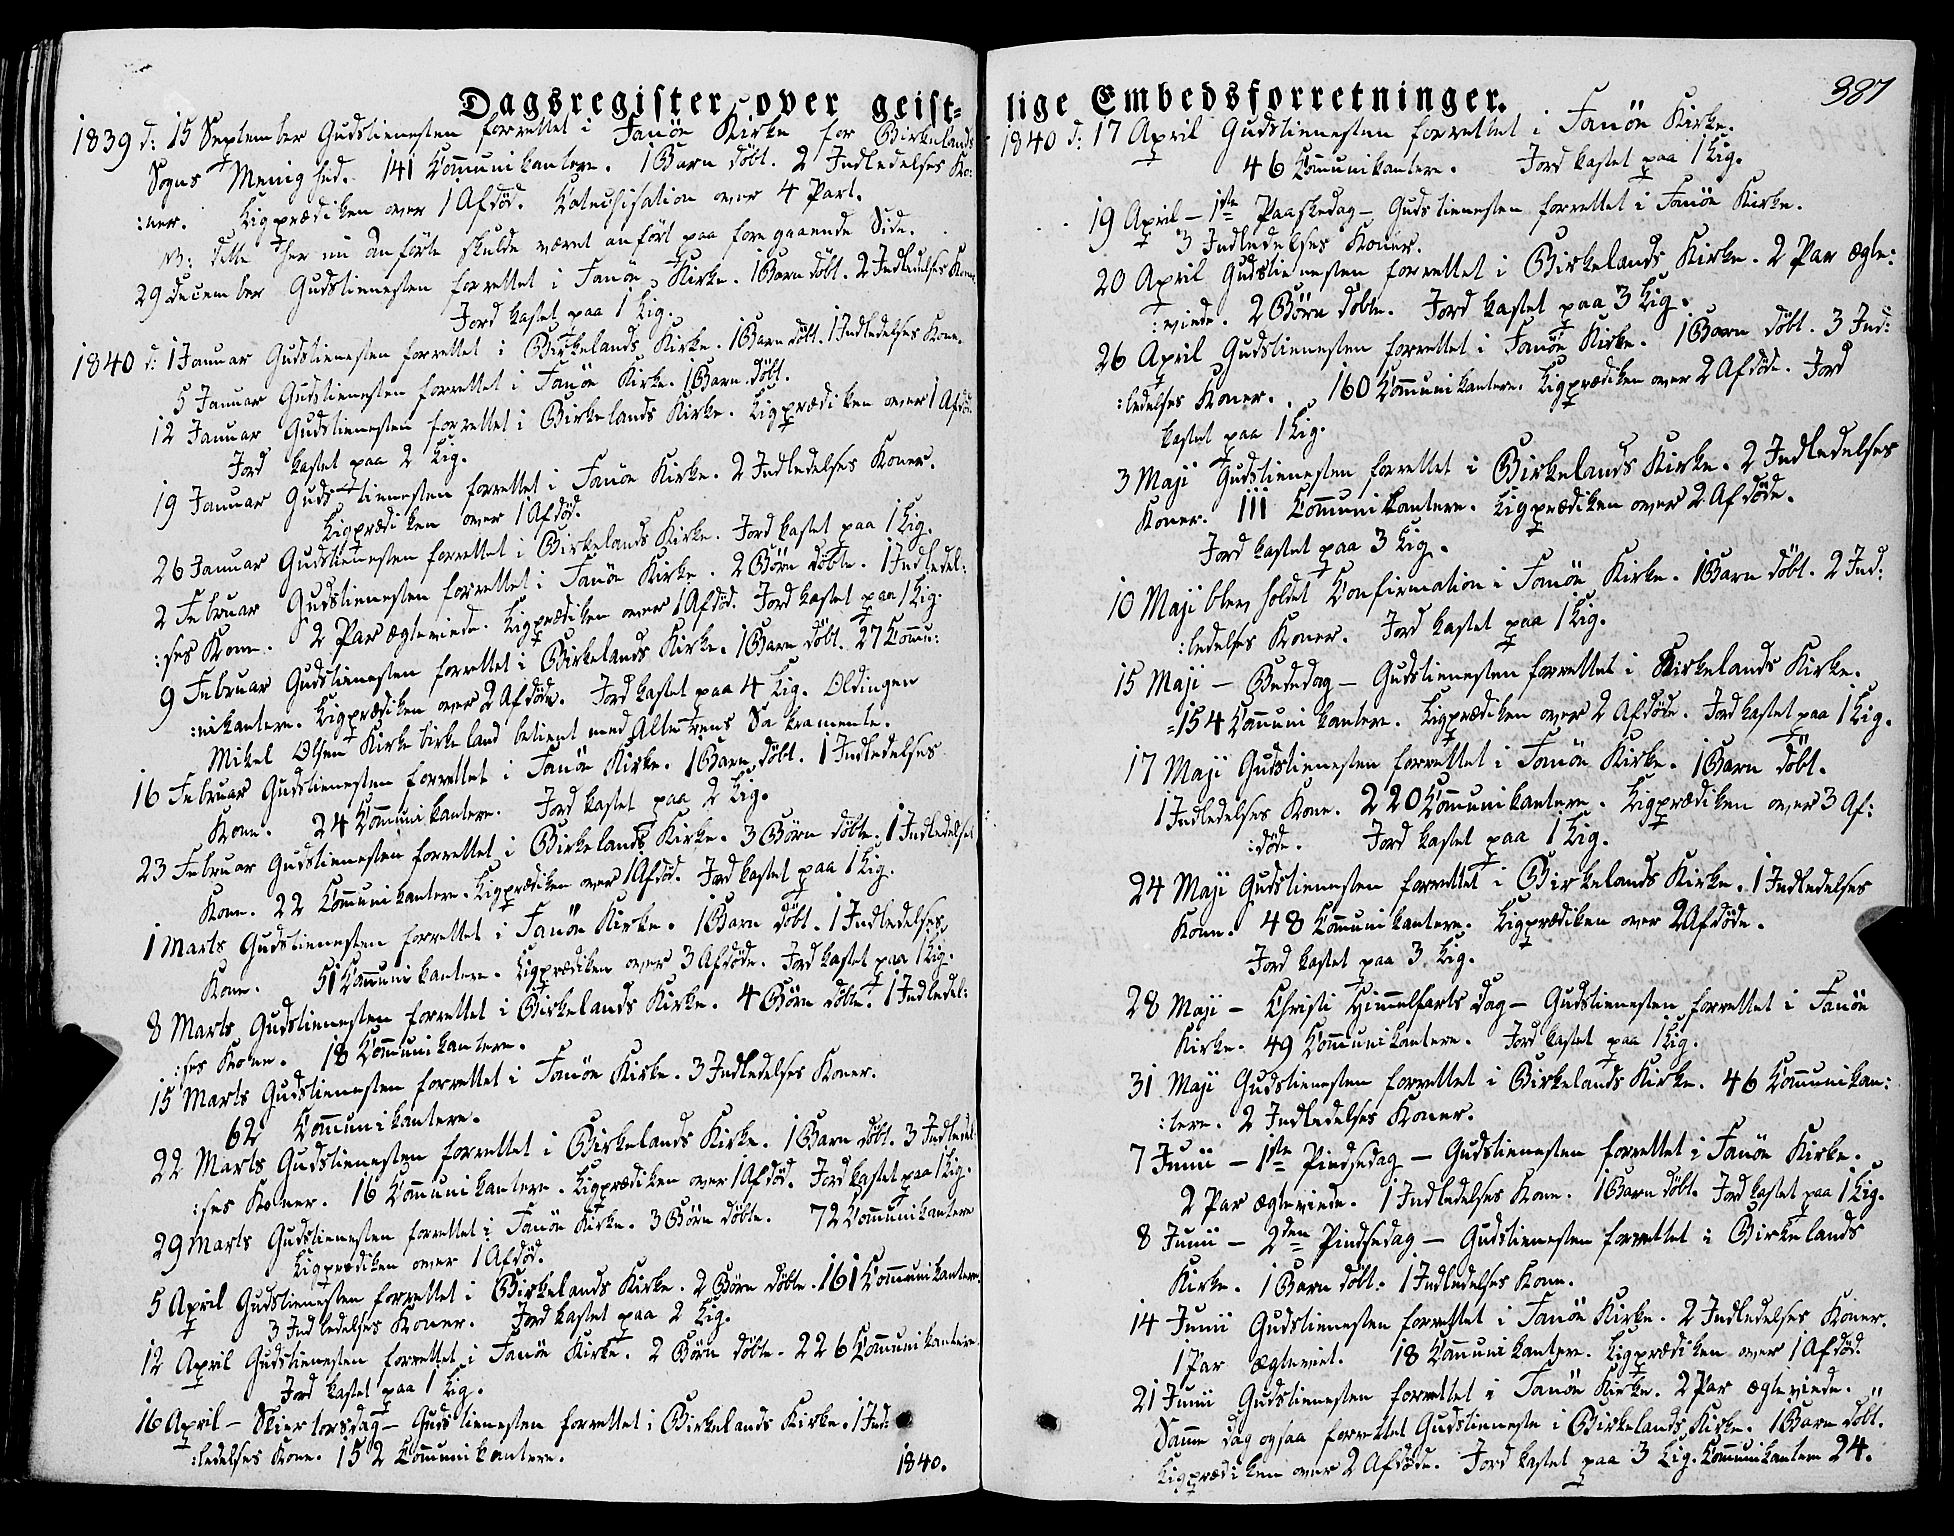 Dagsregister over geist=
1839 d: 15 September Gudstienesten forrettet i Fanöe Kirke for Birkelands
Sogns Menighed. 141 Com̅unikantere. 1 Barn döbt. 2 Indledelses Ko:
:ner. Ligprædiken over 1 Afdöd. Catechisation over 4 Part.
NB: dette her nu anförte skulde været anfört paa foregaaende Side.
29 December Gudstienesten forrettet i Fanöe Kirke. 1 Barn döbt. 2 Indledelses Koner.
Jord kastet paa 1 Lig.
1840 d: 1 Januar Gudstienesten forrettet i Birkelands Kirke. 1 Barn döbt. 1 Indledelses Kone.
5 Januar Gudstienesten forrettet i Fanöe Kirke. 1 Barn döbt.
12 Januar Gudstienesten forrettet i Birkelands Kirke. Ligprædiken over 1 Afdöd.
Jord kastet paa 2 Lig.
19 Januar Gudstienesten forrettet i Fanöe Kirke. 2 Indledelses Koner.
Ligprædiken over 1 Afdöd.
26 Januar Gudstienesten forrettet i Birkelands Kirke. Jord kastet paa 1 Lig.
2 Februar Gudstienesten forrettet i Fanöe Kirke. 2 Börn döbte. 1 Indledel:
:ses Kone. 2 Par ægteviede. Ligprædiken over 1 Afdöd. Jord kastet paa 1 Lig.
9 Februar Gudstienesten forrettet i Birkelands Kirke. 1 Barn döbt. 27 Com̅u:
:nikantere. Ligprædiken over 2 Afdöde. Jord kastet paa 4 Lig. Oldingen
Mikel Olsen Kirkebirkeland betient med Alterens Sakramente.
16 Februar Gudstienesten forrettet i Fanöe Kirke. 1 Barn döbt. 1 Indledelses
Kone. 24 Com̅unikantere. Jord kastet paa 2 Lig.
23 Februar Gudstienesten forrettet i Birkelands Kirke. 3 Börn döbte. 1 Indledelses
Kone. 22 Com̅unikantere. Ligprædiken over 1 Afdöd. Jord kastet paa 1 Lig.
1 Marts Gudstienesten forrettet i Fanöe Kirke. 1 Barn döbt. 1 Indledelses
Kone. 51 Com̅unikantere. Ligprædiken over 3 Afdöde. Jord kastet paa 1 Lig.
8 Marts Gudstienesten forrettet i Birkelands Kirke. 4 Börn döbte. 1 Indledel:
:ses Kone. 18 Com̅unikantere.
15 Marts Gudstienesten forrettet i Fanöe Kirke. 3 Indledelses Koner.
62 Com̅unikantere.
22 Marts Gudstienesten forrettet i Birkelands Kirke. 1 Barn döbt. 3 Indledel:
:ses Koner. 16 Com̅unikantere. Ligprædiken over 1 Afdöd. Jord kastet paa 1 Lig.
29 Marts Gudstienesten forrettet i Fanöe Kirke. 3 Börn döbte. 72 Com̅unikantere
Ligprædiken over 1 Afdöd.
5 April Gudstienesten forrettet i Birkelands Kirke. 2 Börn döbte. 161 Com̅unikantere.
3 Indledelses Koner. Jord kastet paa 2 Lig.
12 April Gudstienesten forrettet i Fanöe Kirke. 2 Börn döbte. 226 Com̅unikantere.
Jord kastet paa 1 Lig.
16 April - Skiertorsdag - Gudstienesten forrettet i Birkelands Kirke. 1 Ind:
:ledelses Kone. 152 Com̅unikantere.
1840.
lige Embedsforretninger.
387
1840 d: 17 April Gudstienesten forrettet i Fanöe Kirke.
46 Com̅unikantere. Jord kastet paa 1 Lig.
19 April - 1ste Paaskedag - Gudstienesten forrettet i Fanöe Kirke.
3 Indledelses Koner.
20 April Gudstienesten forrettet i Birkelands Kirke. 2 Par ægte:
:viede. 2 Börn döbte. Jord kastet paa 3 Lig.
26 April Gudstienesten forrettet i Fanöe Kirke. 1 Barn döbt. 3 Ind:
:ledelses Koner. 160 Com̅unikantere. Ligprædiken over 2 Afdöde. Jord
kastet paa 1 Lig.
3 Maji Gudstienesten forrettet i Birkelands Kirke. 2 Indledelses
Koner. 111 Com̅unikantere. Ligprædiken over 2 Afdöde.
Jord kastet paa 3 Lig.
10 Maji blev holdet Confirmation i Fanöe Kirke. 1 Barn döbt. 2 Ind:
:ledelses Koner. Jord kastet paa 1 Lig.
15 Maji - Bededag - Gudstienesten forrettet i Birkelands Kirke.
=154 Com̅unikantere. Ligprædiken over 2 Afdöde. Jord kastet paa 1 Lig.
17 Maji Gudstienesten forrettet i Fanöe Kirke. 1 Barn döbt.
1 Indledelses Kone. 220 Com̅unikantere. Ligprædiken over 3 Af:
:döde. Jord kastet paa 1 Lig.
24 Maji Gudstienesten forrettet i Birkelands Kirke. 1 Indledelses
Kone. 48 Com̅unikantere. Ligprædiken over 2 Afdöde.
Jord kastet paa 3 Lig.
28 Maji - Christi Himmelfarts Dag - Gudstienesten forrettet i Fanöe
Kirke. 49 Com̅unikantere. Jord kastet paa 1 Lig.
31 Maji Gudstienesten forrettet i Birkelands Kirke. 46 Com̅unikan:
:tere. 2 Indledelses Koner.
7 Junii - 1ste Pindsedag - Gudstienesten forrettet i Fanöe Kirke.
2 Par ægteviede. 1 Indledelses Kone. 1 Barn döbt. Jord kastet paa 1 Lig.
8 Junii - 2den Pindsedag - Gudstienesten forrettet i Birkelands
Kirke. 1 Barn döbt. 1 Indledelses Kone.
14 Junii Gudstienesten forrettet i Fanöe Kirke. 2 Indledelses Koner.
1 Par ægteviet. 18 Com̅unikantere. Ligprædiken over 1 Afdöd.
21 Junii Gudstienesten forrettet i Fanöe Kirke. 2 Par ægteviede.
Sam̅e Dag ogsaa forrettet Gudstieneste i Birkelands Kirke. 1 Barn döbt.
Ligprædiken over 2 Afdöde. Jord kastet paa 3 Lig. Com̅unikantere 24.